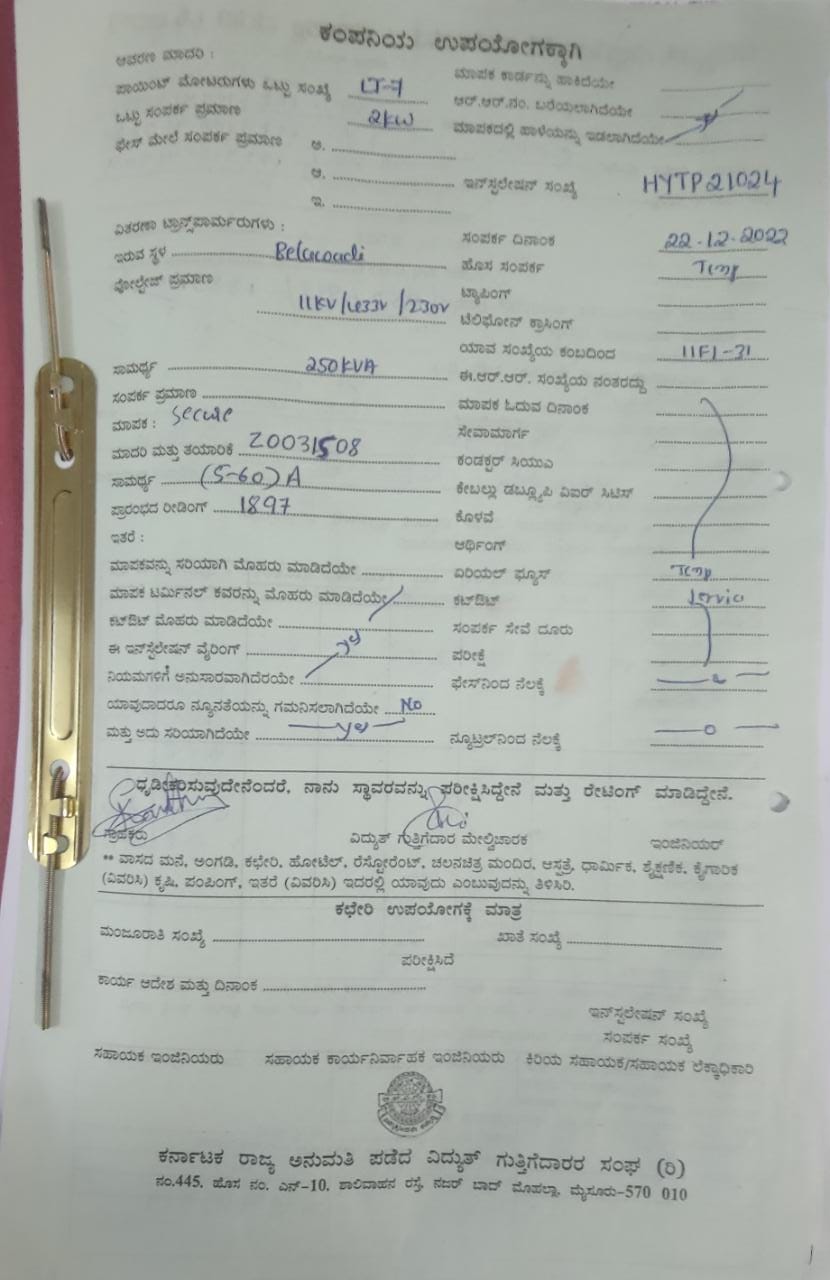 ಕಂಪನಿಯ ಉಪಯೋಗಕ್ಕಾಗಿ
ಆವರಣ ಮಾದರಿ :
ಪಾಯಿಂಟ್ ಮೋಟರುಗಳು ಒಟ್ಟು ಸಂಖ್ಯೆ LT-7 ಮಾಪಕ ಕಾರ್ಡನ್ನು ಹಾಕಿದೆಯೇ
ಒಟ್ಟು ಸಂಪರ್ಕ ಪ್ರಮಾಣ 2kw ಆರ್.ಆರ್.ನಂ. ಬರೆಯಲಾಗಿದೆಯೇ
ಫೇಸ್ ಮೇಲೆ ಸಂಪರ್ಕ ಪ್ರಮಾಣ ಅ. ಮಾಪಕದಲ್ಲಿ ಹಾಳೆಯನ್ನು ಇಡಲಾಗಿದೆಯೇ
ಆ. ಇನ್‌ಸ್ಟಲೇಷನ್ ಸಂಖ್ಯೆ HYTP21024
ಇ.
ವಿತರಣಾ ಟ್ರಾನ್ಸ್‌ಪಾರ್ಮರುಗಳು : ಸಂಪರ್ಕ ದಿನಾಂಕ 22-12-2022
ಇರುವ ಸ್ಥಳ ಹೊಸ ಸಂಪರ್ಕ Temp
ವೋಲ್ಟೇಜ್ ಪ್ರಮಾಣ ಟ್ಯಾಪಿಂಗ್
11KV/433V/230V ಟೆಲಿಫೋನ್ ಕ್ರಾಸಿಂಗ್
ಯಾವ ಸಂಖ್ಯೆಯ ಕಂಬದಿಂದ 11F1-31
ಸಾಮರ್ಥ್ಯ 250KVA ಈ.ಆರ್.ಆರ್. ಸಂಖ್ಯೆಯ ನಂತರದ್ದು
ಸಂಪರ್ಕ ಪ್ರಮಾಣ ಮಾಪಕ ಓದುವ ದಿನಾಂಕ
ಮಾಪಕ : Secure ಸೇವಾಮಾರ್ಗ
ಮಾದರಿ ಮತ್ತು ತಯಾರಿಕೆ 20031508 ಕಂಡಕ್ಟರ್ ಸಿಯುಎ
ಸಾಮರ್ಥ್ಯ (5-60)A ಕೇಬಲ್ಲು ಡಬ್ಲ್ಯೂಪಿ ವಿಐರ್ ಸಿಟಿಸ್
ಪ್ರಾರಂಭದ ರೀಡಿಂಗ್ 1897 ಕೊಳವೆ
ಇತರೆ : ಆರ್ಥಿಂಗ್
ಮಾಪಕವನ್ನು ಸರಿಯಾಗಿ ಮೊಹರು ಮಾಡಿದೆಯೇ ಏರಿಯಲ್ ಫ್ಯೂಸ್ Temp
ಮಾಪಕ ಟರ್ಮಿನಲ್ ಕವರನ್ನು ಮೊಹರು ಮಾಡಿದೆಯೇ ಕಟ್‌ಔಟ್ Service
ಕಟ್‌ಔಟ್ ಮೊಹರು ಮಾಡಿದೆಯೇ ಸಂಪರ್ಕ ಸೇವೆ ದೂರು
ಈ ಇನ್‌ಸ್ಟೆಲೇಷನ್ ವೈರಿಂಗ್ yes ಪರೀಕ್ಷೆ
ನಿಯಮಗಳಿಗೆ ಅನುಸಾರವಾಗಿದೆರಯೇ ಫೇಸ್‌ನಿಂದ ನೆಲಕ್ಕೆ
ಯಾವುದಾದರೂ ನ್ಯೂನತೆಯನ್ನು ಗಮನಿಸಲಾಗಿದೆಯೇ No
ಮತ್ತು ಅದು ಸರಿಯಾಗಿದೆಯೇ yes ನ್ಯೂಟ್ರಲ್‌ನಿಂದ ನೆಲಕ್ಕೆ — 0 —
ಧೃಡೀಕರಿಸುವುದೇನೆಂದರೆ, ನಾನು ಸ್ಥಾವರವನ್ನು ಪರೀಕ್ಷಿಸಿದ್ದೇನೆ ಮತ್ತು ರೇಟಿಂಗ್ ಮಾಡಿದ್ದೇನೆ.
ಗ್ರಾಹಕರು ವಿದ್ಯುತ್ ಗುತ್ತಿಗೆದಾರ ಮೇಲ್ವಿಚಾರಕ ಇಂಜಿನಿಯರ್
** ವಾಸದ ಮನೆ, ಅಂಗಡಿ, ಕಛೇರಿ, ಹೋಟೆಲ್, ರೆಸ್ಟೋರೆಂಟ್, ಚಲನಚಿತ್ರ ಮಂದಿರ, ಆಸ್ಪತ್ರೆ, ಧಾರ್ಮಿಕ, ಶೈಕ್ಷಣಿಕ, ಕೈಗಾರಿಕ
(ವಿವರಿಸಿ) ಕೃಷಿ, ಪಂಪಿಂಗ್, ಇತರೆ (ವಿವರಿಸಿ) ಇದರಲ್ಲಿ ಯಾವುದು ಎಂಬುವುದನ್ನು ತಿಳಿಸಿರಿ.
ಕಛೇರಿ ಉಪಯೋಗಕ್ಕೆ ಮಾತ್ರ
ಮಂಜೂರಾತಿ ಸಂಖ್ಯೆ ಖಾತೆ ಸಂಖ್ಯೆ
ಪರೀಕ್ಷಿಸಿದೆ
ಕಾರ್ಯ ಆದೇಶ ಮತ್ತು ದಿನಾಂಕ
ಇನ್‌ಸ್ಟಲೇಷನ್ ಸಂಖ್ಯೆ
ಸಂಪರ್ಕ ಸಂಖ್ಯೆ
ಸಹಾಯಕ ಇಂಜಿನಿಯರು ಸಹಾಯಕ ಕಾರ್ಯನಿರ್ವಾಹಕ ಇಂಜಿನಿಯರು ಕಿರಿಯ ಸಹಾಯಕ/ಸಹಾಯಕ ಲೆಕ್ಕಾಧಿಕಾರಿ
ಕರ್ನಾಟಕ ರಾಜ್ಯ ಅನುಮತಿ ಪಡೆದ ವಿದ್ಯುತ್ ಗುತ್ತಿಗೆದಾರರ ಸಂಘ (ರಿ)
ನಂ.445, ಹೊಸ ನಂ. ಎನ್-10, ಶಾಲಿವಾಹನ ರಸ್ತೆ, ನಜರ್ ಬಾದ್ ಮೊಹಲ್ಲಾ, ಮೈಸೂರು-570 010